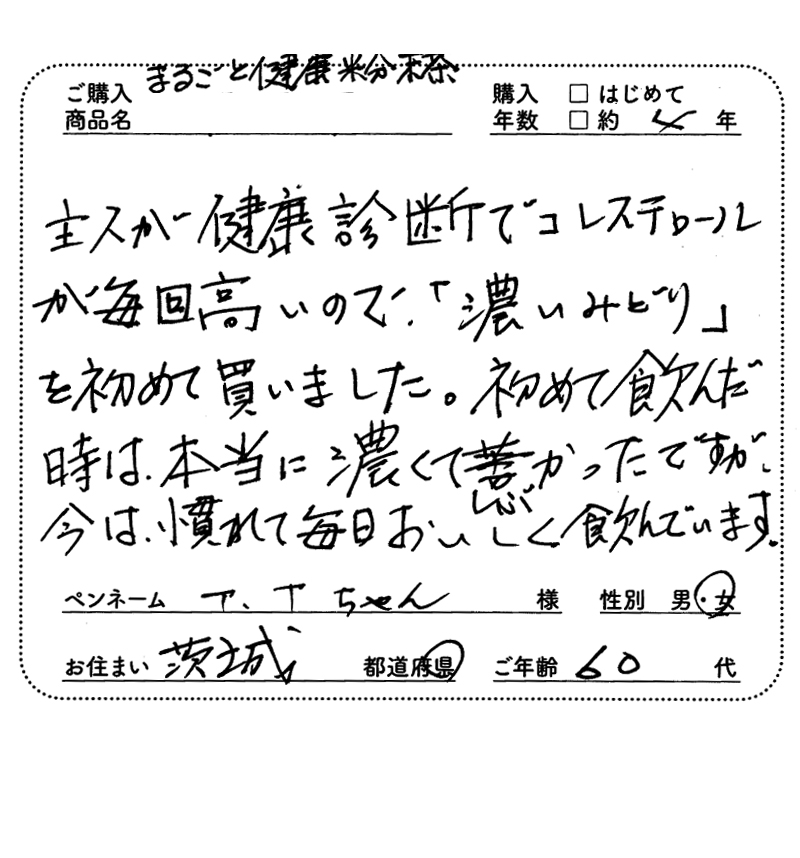 まるごと健康粉末茶
ご購入
商品名
購入 □ はじめて
年数 □ 約 4 年
主人が健康診断でコレステロール
が毎回高いので、「濃いみどり」
を初めて買いました。初めて飲んだ
時は、本当に濃くて苦かったですが、
しぶ
今は、慣れて毎日おいしく飲んでいます。
ペンネーム T.Tちゃん 様 性別 男・女
お住まい 茨城 都道府県 ご年齢 60 代